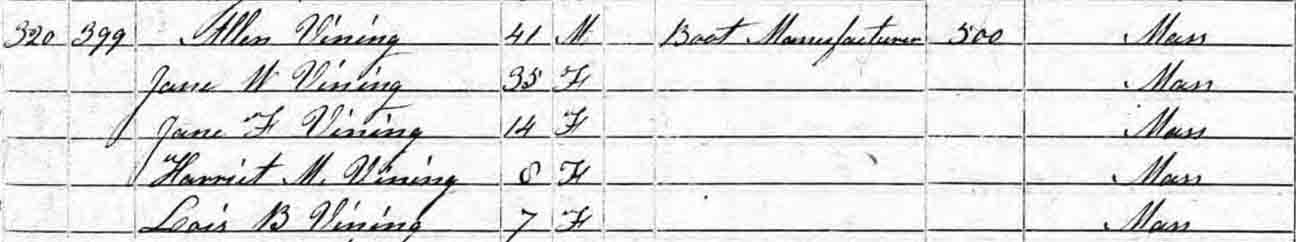 320 399 Allen Vining 41 M Boot Manufacturer 500 Mass
Jane W Vining 35 F Mass
Jane F Vining 14 F Mass
Harriet M. Vining 8 F Mass
Lois B Vining 7 F Mass